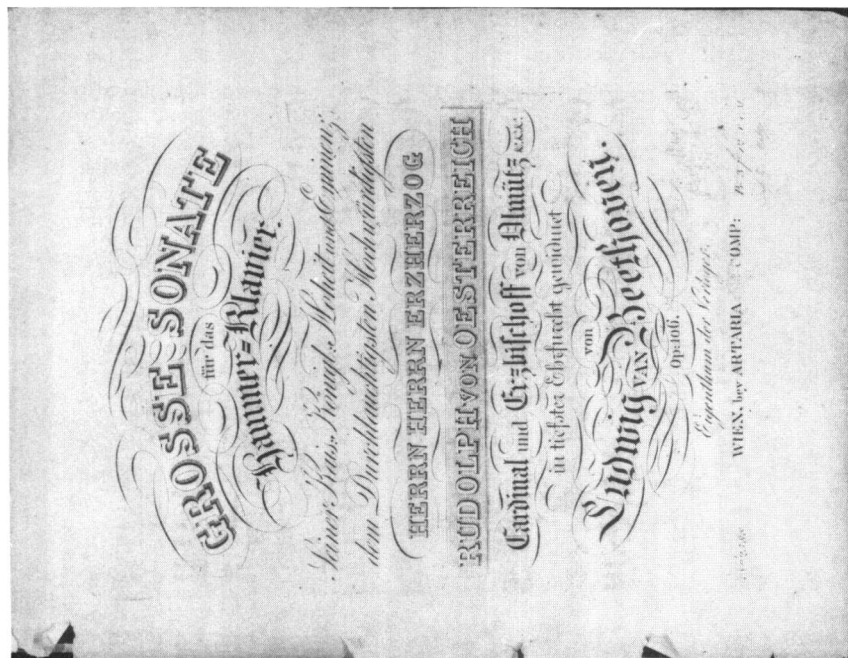 GROSSE SONATE
für das
Hammer=Klavier.
Seiner Kais. Königl. Hoheit und Eminenz,
dem Durchlauchtigsten Hochwürdigsten
HERRN HERRN ERZHERZOG
RUDOLPH VON OESTERREICH
Cardinal und Erzbischoff von Olmütz &.&.&.
in tiefster Ehrfurcht gewidmet
von
Ludwig VAN Beethoven.
Op: 106.
Eigenthum der Verleger.
WIEN, bey ARTARIA COMP: